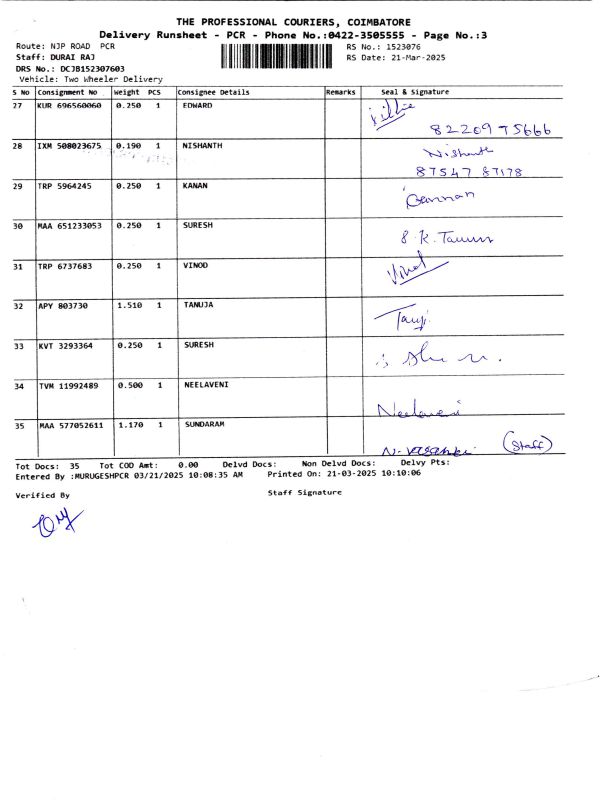 THE PROFESSIONAL COURIERS, COIMBATORE
Delivery Runsheet - PCR - Phone No.:0422-3505555 - Page No.:3
Route: NJP ROAD PCR RS No.: 1523076
Staff: DURAI RAJ RS Date: 21-Mar-2025
DRS No.: DCJB152307603
Vehicle: Two Wheeler Delivery
S No Consignment No Weight PCS Consignee Details Remarks Seal & Signature
27 KUR 696560060 0.250 1 EDWARD
82209 75666
28 IXM 508023675 0.190 1 NISHANTH Nishanth
87547 87178
29 TRP 5964245 0.250 1 KANAN Gannan
30 MAA 651233053 0.250 1 SURESH
31 TRP 6737683 0.250 1 VINOD Vinod
32 APY 803730 1.510 1 TANUJA
33 KVT 3293364 0.250 1 SURESH
34 TVM 11992489 0.500 1 NEELAVENI Neelaveni
35 MAA 577052611 1.170 1 SUNDARAM (Staff)
Tot Docs: 35 Tot COD Amt: 0.00 Delvd Docs: Non Delvd Docs: Delvy Pts:
Entered By :MURUGESHPCR 03/21/2025 10:08:35 AM Printed On: 21-03-2025 10:10:06
Verified By Staff Signature